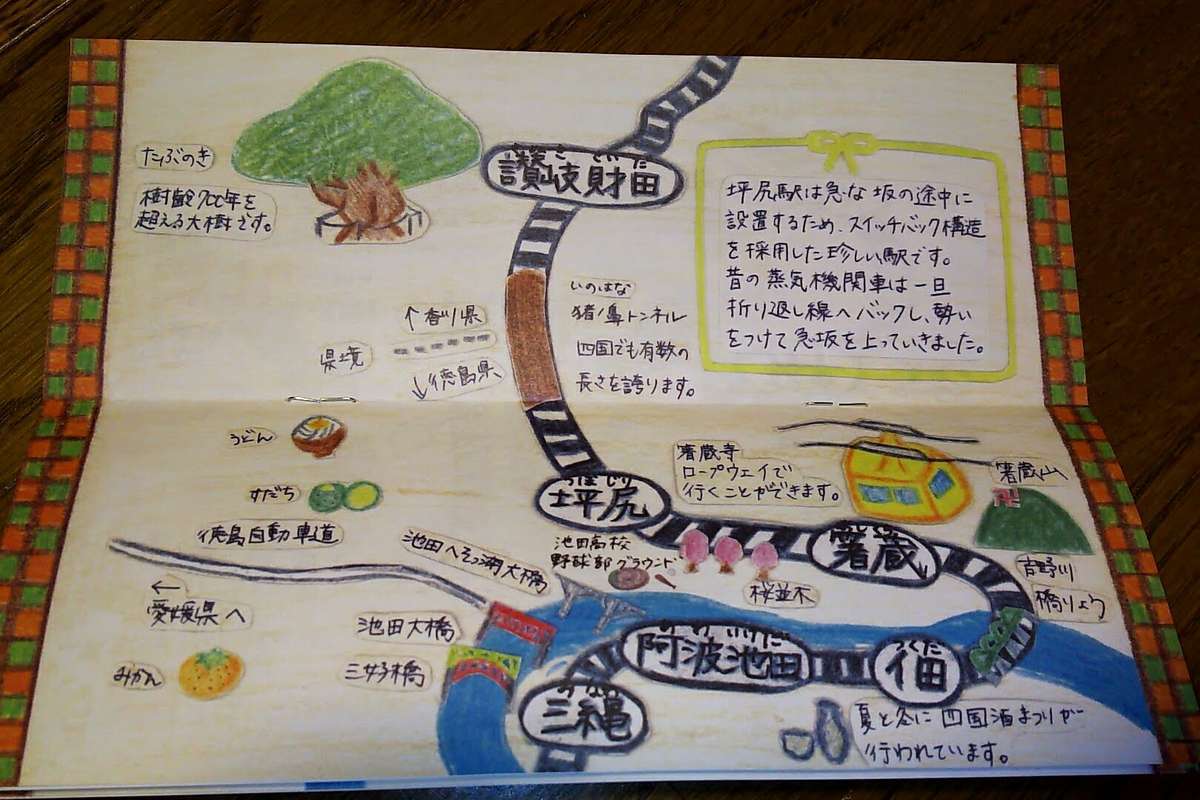 たぶのき
樹齢700年を
超える大樹です。
さぬきさいた
讃岐財田
坪尻駅は急な坂の途中に
設置するため、スイッチバック構造
を採用した珍しい駅です。
昔の蒸気機関車は一旦
折り返し線へバックし、勢い
をつけて急坂を上っていきました。
いのはな
猪ノ鼻トンネル
四国でも有数の
長さを誇ります。
↑香川県
県境
↓徳島県
うどん
すだち
徳島自動車道
←
愛媛県へ
みかん
つぼじり
坪尻
箸蔵寺
ロープウェイで
行くことができます。
箸蔵山
卍
池田へそっ湖大橋
池田高校
野球部グラウンド
桜並木
箸蔵
吉野川
橋りょう
池田大橋
三好橋
阿波池田
つくだ
佃
みなわ
三縄
夏と冬に四国酒まつりが
行われています。